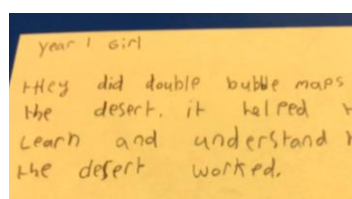 year 1 Girl
they did double bubble maps
the desert. it helped
Learn and understand
the desert worked.